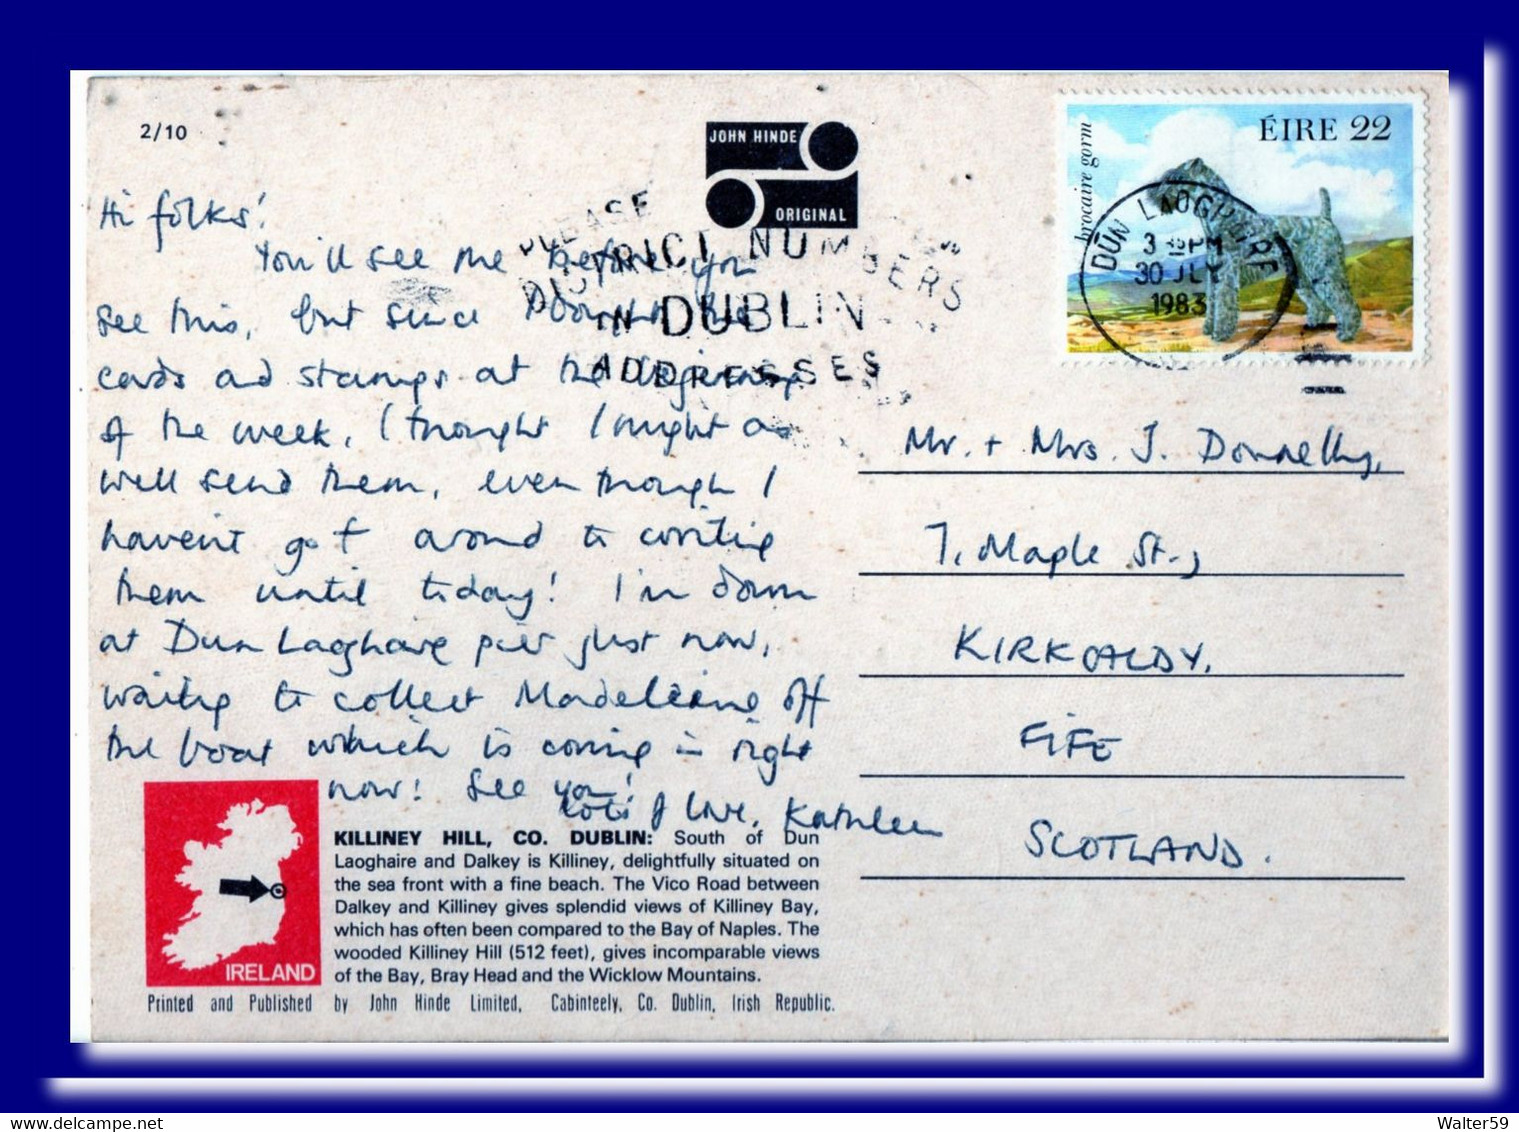 2/10
JOHN HINDE
ORIGINAL
ÉIRE 22
brocaire gorm
DÚN LAOGHAIRE
3 PM
30 JLY
1983
PLEASE
DISTRICT NUMBERS
IN DUBLIN
ADDRESSES
Hi folks!
You'll see me before you
see this, but since I bought the
cards and stamps at the beginning
of the week, I thought I might as
well send them, even though I
haven't got around to writing
them until today! I'm down
at Dun Laoghaire pier just now,
waiting to collect Madeleine off
the boat which is coming in right
now! See you!
Lots of love, Kathleen
Mr. + Mrs. J. Donnelly,
7, Maple St.,
KIRKCALDY.
FIFE
SCOTLAND.
IRELAND
KILLINEY HILL, CO. DUBLIN: South of Dun
Laoghaire and Dalkey is Killiney, delightfully situated on
the sea front with a fine beach. The Vico Road between
Dalkey and Killiney gives splendid views of Killiney Bay,
which has often been compared to the Bay of Naples. The
wooded Killiney Hill (512 feet), gives incomparable views
of the Bay, Bray Head and the Wicklow Mountains.
Printed and Published by John Hinde Limited, Cabinteely, Co. Dublin, Irish Republic.
Walter59